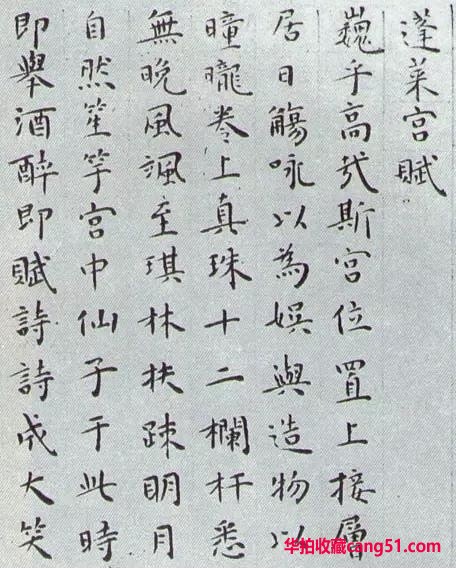 蓬莱宫賦
巍乎高哉斯宫位置上接層
居日觴咏以為娱與造物以
曈曨卷上真珠十二欄杆悉
無晚風颯至琪林扶踈明月
自然笙竽宫中仙子于此時
即舉酒醉即賦詩詩成大笑
华拍收藏cang51.com